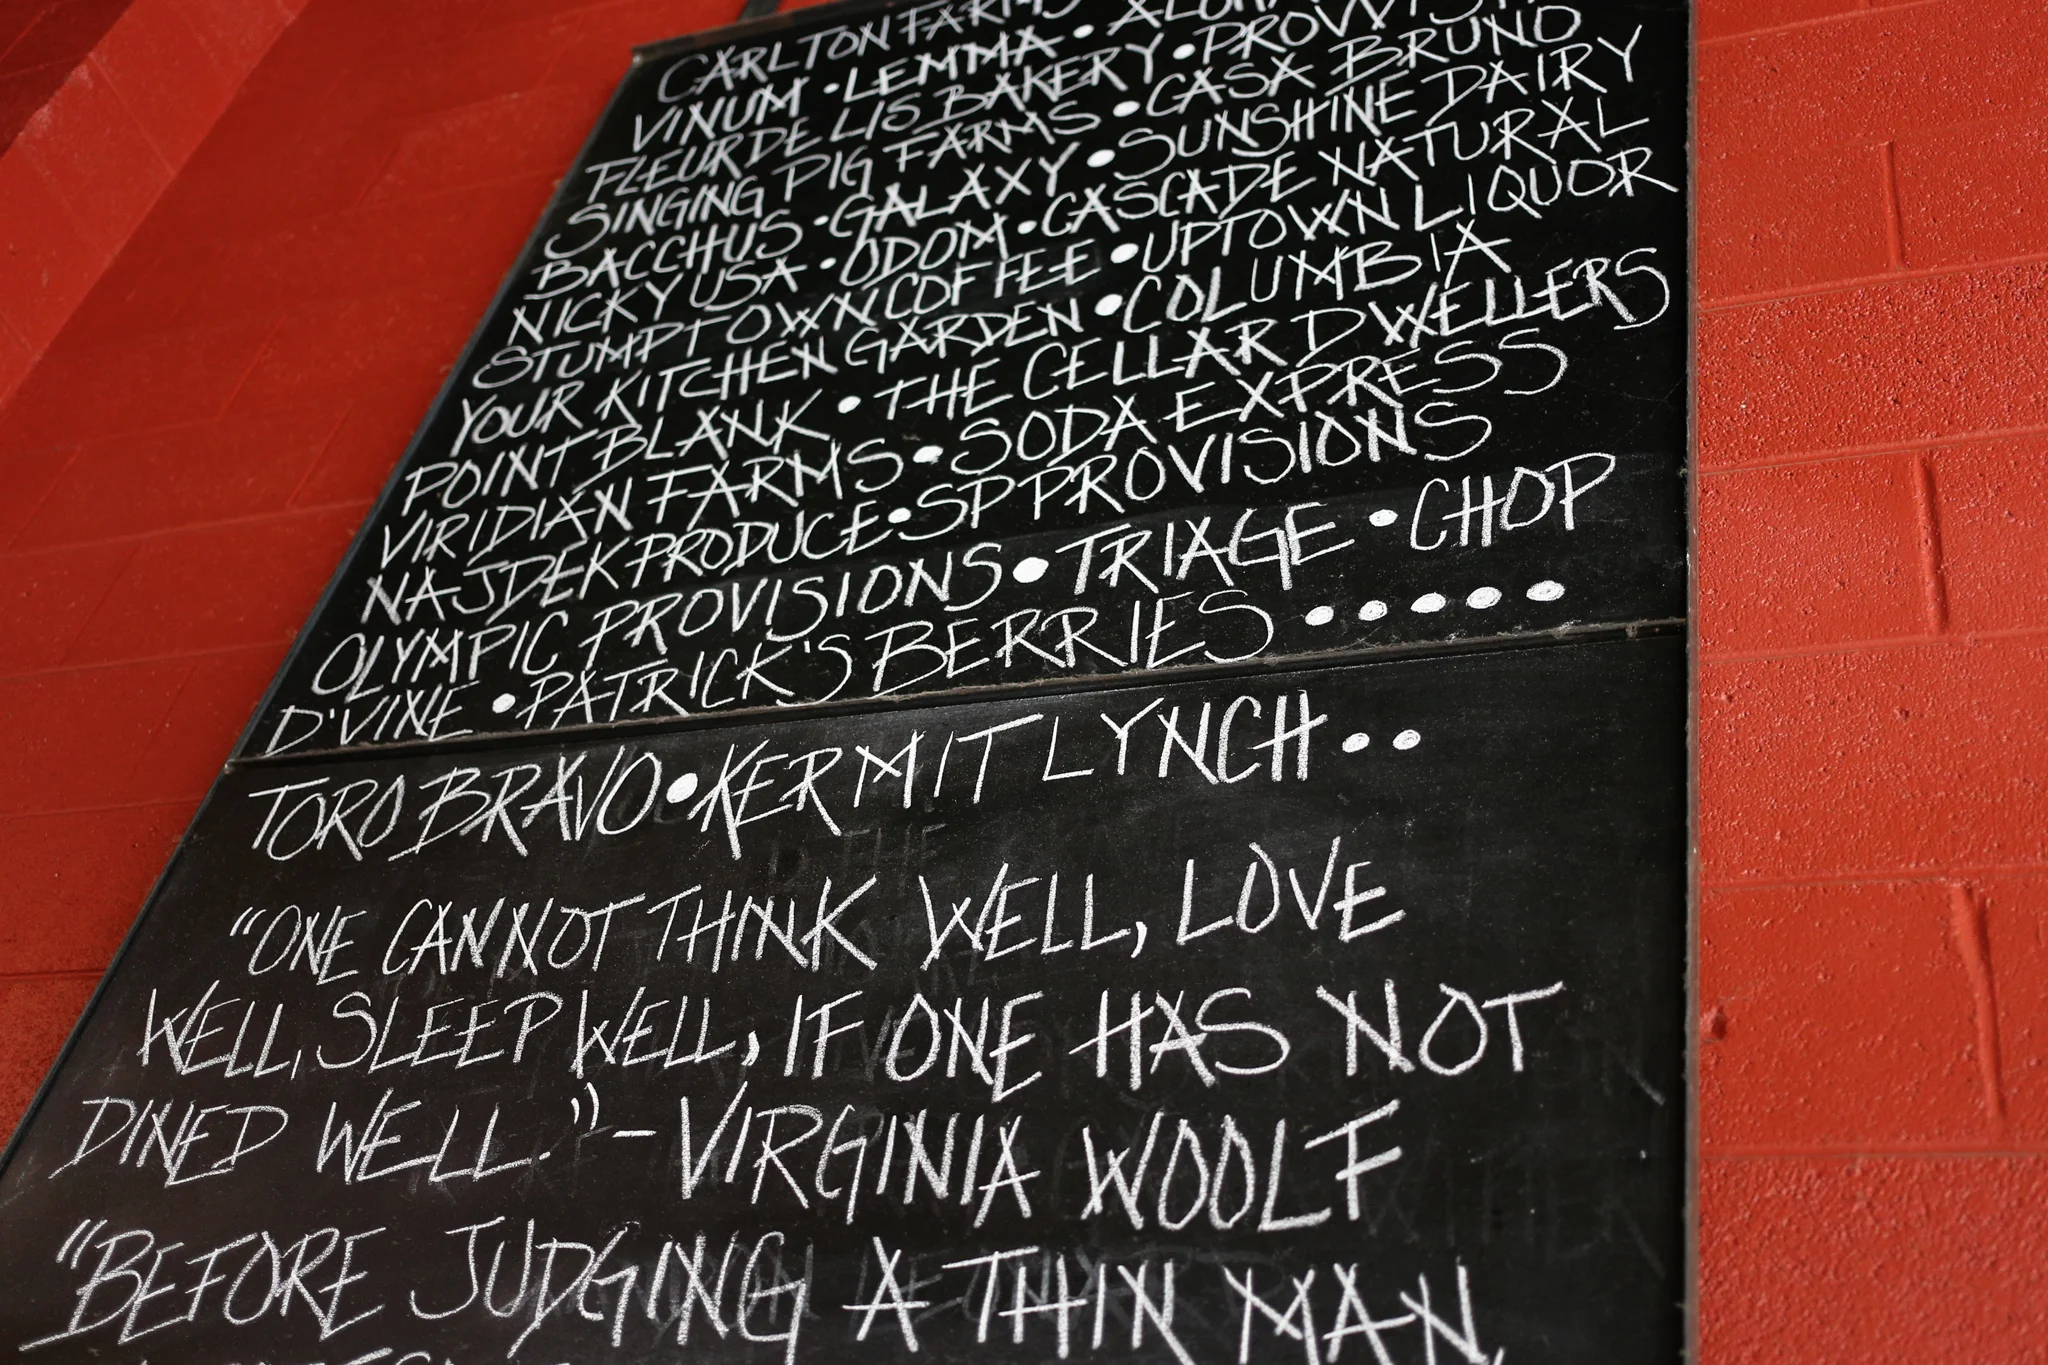 CARLTON FARMS •
VINUM • LEMMA •
FLEUR DE LIS BAKERY •
SINGING PIG FARMS • CASA BRUNO
BACCHUS • GALAXY • SUNSHINE DAIRY
NICKY USA • ODOM • CASCADE NATURAL
STUMPTOWN COFFEE • UPTOWN LIQUOR
YOUR KITCHEN GARDEN • COLUMBIA
POINT BLANK • THE CELLAR DWELLERS
VIRIDIAN FARMS • SODA EXPRESS
NAJDEK PRODUCE • SP PROVISIONS
OLYMPIC PROVISIONS • TRIAGE • CHOP
D'VINE • PATRICK'S BERRIES •••••
TORO BRAVO • KERMIT LYNCH ••
"ONE CANNOT THINK WELL, LOVE
WELL, SLEEP WELL, IF ONE HAS NOT
DINED WELL." - VIRGINIA WOOLF
"BEFORE JUDGING A THIN MAN,